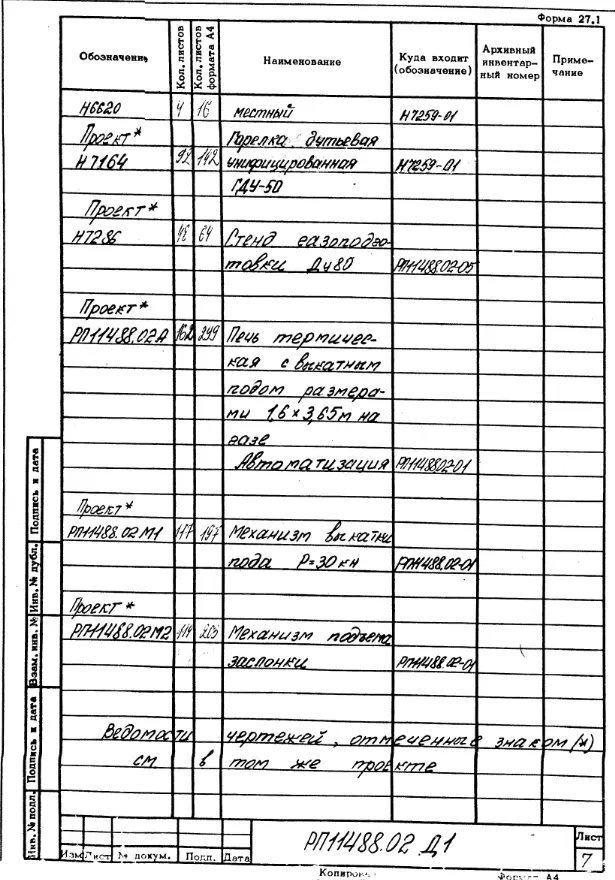 Форма 27.1
Обозначение Кол. листов Кол. листов формата А4 Наименование Куда входит (обозначение) Архивный инвентарный номер Приме-чание
Н6620 4 16 местный Н7259-01
Проект* Горелка дутьевая
Н7164 92 142 унифицированная Н7259-01
ГДУ-50
Проект*
Н7286 64 Стенд газоподго-
товки Ду80 РП11488.02-05
Проект*
РП11488.02А 162 299 Печь термичес-
кая с выкатным
подом размера-
ми 1,6 × 3,65м на
газе
Автоматизация РП11488.02-01
Проект*
РП11488.02М1 117 197 Механизм выкатки
пода Р=30кн РП11488.02-01
Проект*
РП11488.02М2 114 203 Механизм подъема
заслонки РП11488.02-01
Ведомости чертежей, отмеченные знаком (*)
см. в том же проекте
Инв. № подл. Подпись и дата Взам. инв. № Инв. № дубл. Подпись и дата
Изм Лист № докум. Подп. Дата
РП11488.02 Д1
Лист
7
Копировал
Формат А4